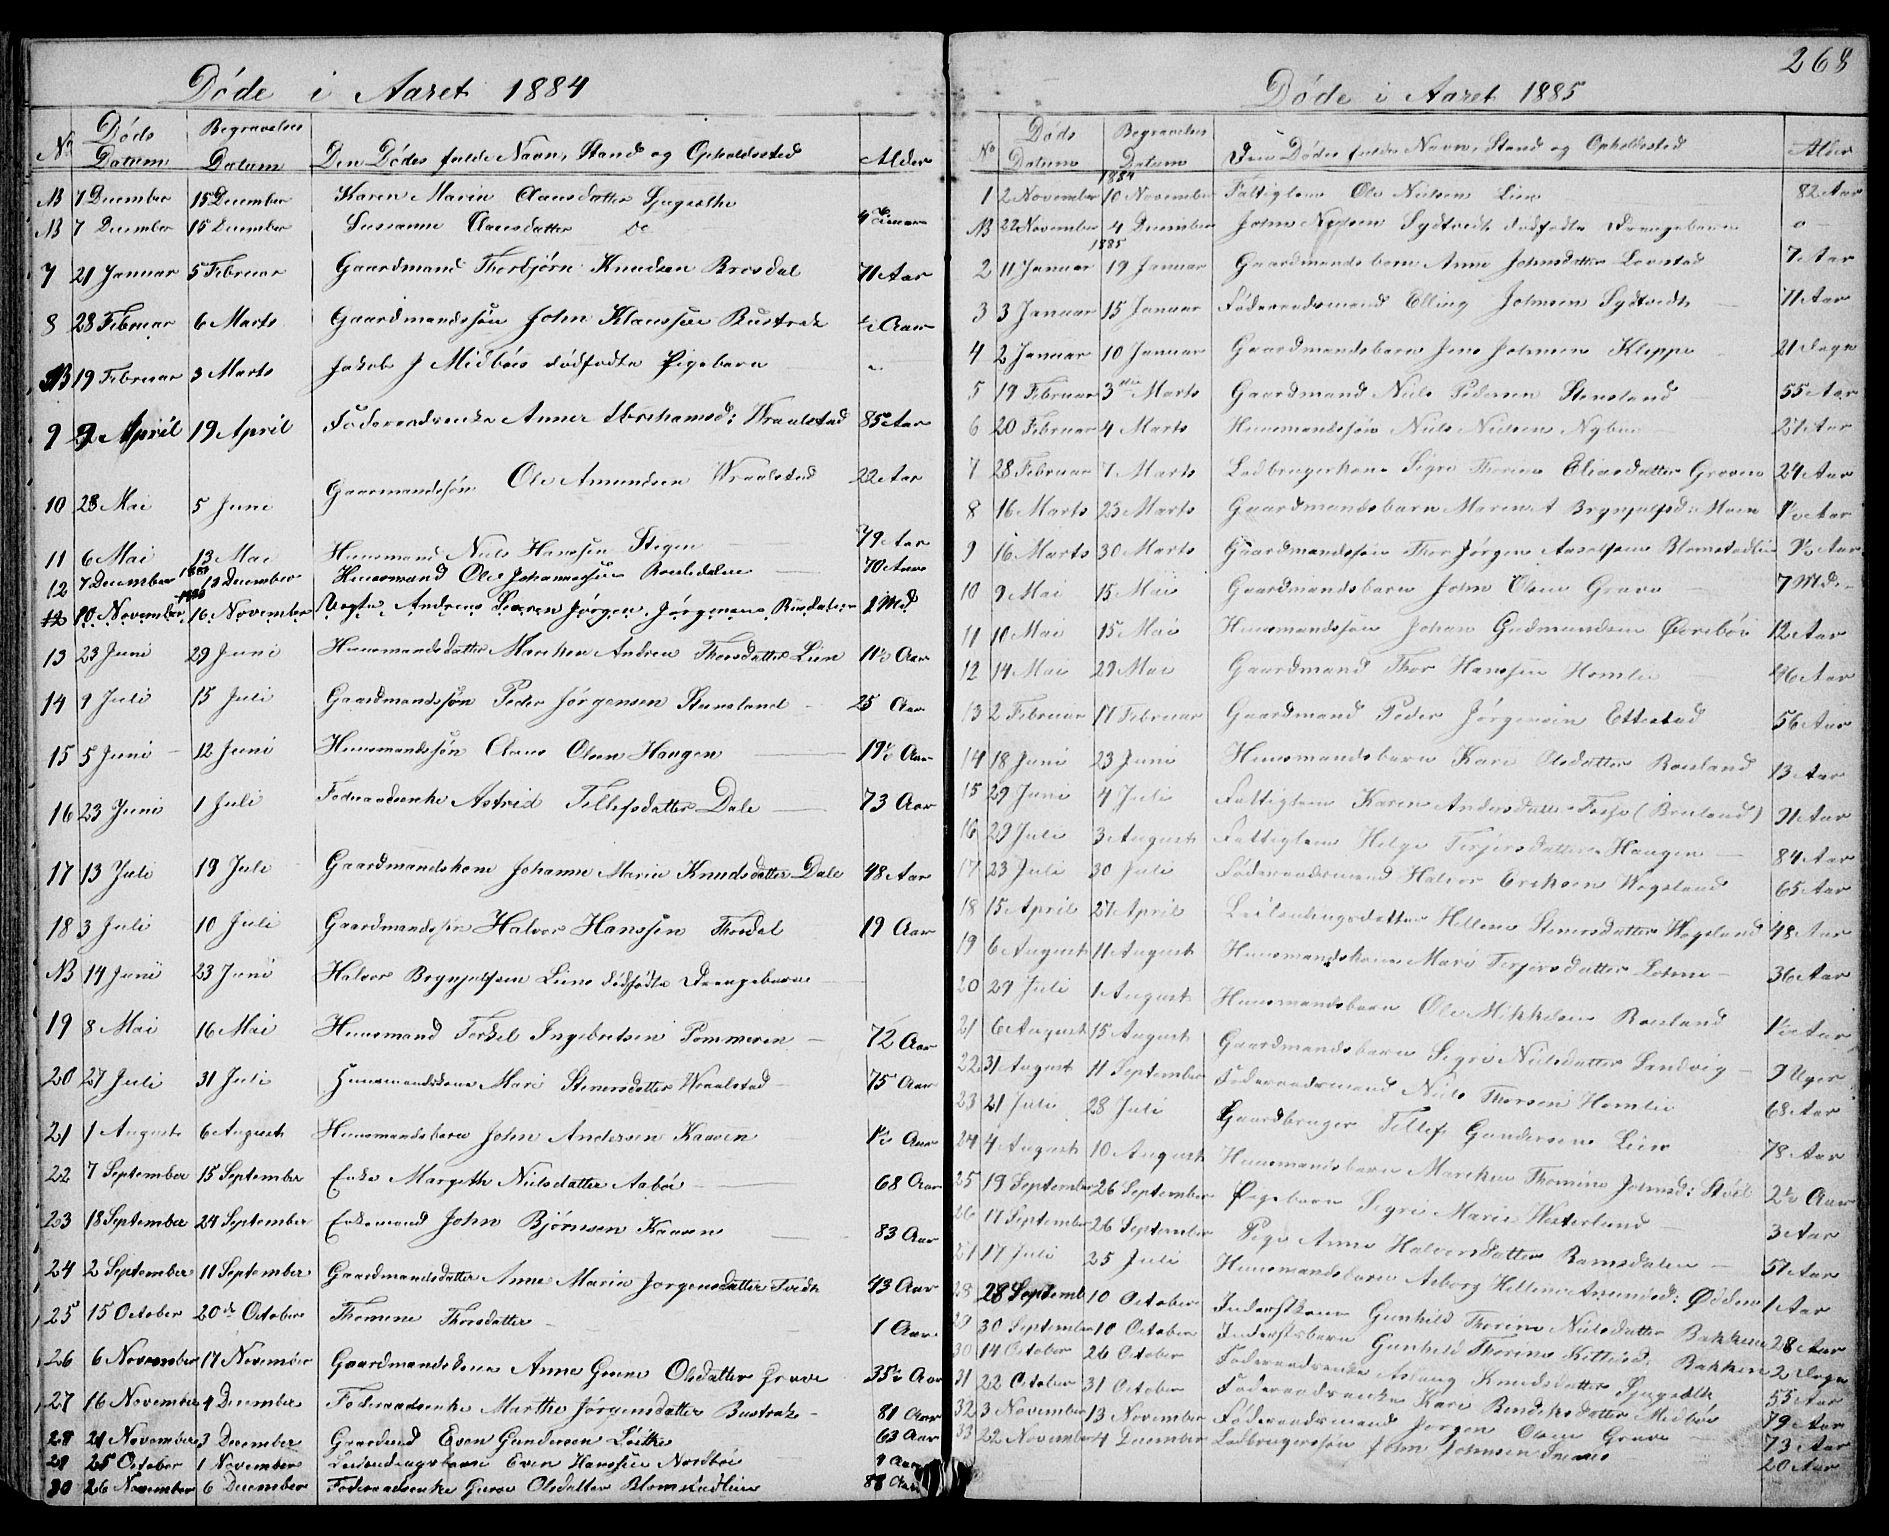 Døde i Aaret 1884
No Døds Datum Begravelses Datum Den Dødes fulde Navn, Stand og Opholdssted Alder
NB 7 December 15 December Karen Marie Clausdatter
NB 7 December 15 December Susanne Clausdatter do
7 21 Januar 5 Februar Gaardmand Thorbjørn Knudsen Brosdal 71 Aar
8 28 Februar 6 Marts Gaardmandssøn John Klaussen Bustrak ½ Aar
NB 19 Februar 3 Marts Jakob J Midbøes dødfødte Pigebarn
9 9 April 19 April Føderaadsenke Anne Abrahamsd: Wraalstad 85 Aar
10 28 Mai 5 Juni Gaarmandssøn Ole Amundsen Wraalstad 22 Aar
11 6 Mai 13 Mai Huusmand Niels Hanssen Stegen 79 Aar
12 7 December 13 December Huusmand Ole Johannessen 70 Aar
12 10 November 16 November Andreas Jørgen Jørgensens 1 Md
13 23 Juni 29 Juni Huusmandsdatter Marthea Andrea Thorsdatter Lien 11½ Aar
14 9 Juli 15 Juli Gaardmandssøn Peder Jørgensen Stensland 25 Aar
15 5 Juni 12 Juni Huusmandssøn Claus Olsen Haugen 19½ Aar
16 23 Juni 1 Juli Føderaadsenke Astrid Tellefsdatter Dale 73 Aar
17 13 Juli 19 Juli Gaardmandskone Johanne Marie Knudsdatter Dale 48 Aar
18 3 Juli 10 Juli Gaardmandssøn Halvor Hanssen Thordal 19 Aar
NB 14 Juni 23 Juni Halvor Brynjulfsen Liens dødfødte Drengebarn
19 8 Mai 16 Mai Huusmand Torkel Ingebretsen Pommeren 72 Aar
20 27 Juli 31 Juli Huusmandskone Mari Stenersdatter Wraalstad 75 Aar
21 1 August 6 August Huusmandsbarn John Andersen Kaaven 1½ Aar
22 7 September 15 September Enke Margethe Nielsdatter Aabøe 68 Aar
23 18 September 24 September Enkemand John Bjørnsen Kaaven 83 Aar
24 2 September 11 September Gaardmandsdatter Anne Maria Jørgensdatter Tvedt 43 Aar
25 15 October 20de October Thomine Thorsdatter 1 Aar
26 6 November 17 November Gaardmandskone Anne Gurine Olsdatter Grave 35½ Aar
27 16 November 4 December Føderaadsenke Marthe Jørgensdatter Bustrak 81 Aar
28 21 November 3 December Even Gundersen 63 Aar
29 25 October 1 November Even Hanssen Nordbøe Aar
30 26 November 6 December Føderaadsenke Gurو Olsdatter Blomstadlien 88 Aar
268
Døde i Aaret 1885
No Døds Datum Begravelses Datum Den Dødes fulde Navn, Stand og Opholdssted Alder
1884
1 2 November 10 November Fattiglem Ole Nielsen Lien 82 Aar
NB 22 November 4 December John Nielsen Sydtvedts dødfødte Drengebarn 0
1885
2 11 Januar 19 Januar Gaardmandsbarn Anne Johnsdatter Lovstad 7 Aar
3 3 Januar 15 Januar Føderaadsmand Elling Johnsen Sydtvedt 71 Aar
4 2 Januar 10 Januar Gaardmandsbarn Jens Johnsen Kleppe 21 Dage
5 19 Februar 3die Marts Gaardmand Niels Pedersen Stensland 55 Aar
6 20 Februar 4 Marts Huusmandssøn Niels Nielsen Nybue 27 Aar
7 28 Februar 7 Marts Ladbrugerkone Sigri Thorine Eliasdatter Groven 24 Aar
8 16 Marts 23 Marts Gaardmandsbarn Marinet Brynjulfsd: Moen 1½ Aar
9 16 Marts 30 Marts Gaardmandssøn Thor Jørgen Anselsen Blomstadlien 9½ Aar
10 9 Mai 15 Mai Gaardmandsbarn John Olsen Grave 7 Md.
11 10 Mai 15 Mai Huusmandssøn Johan Gudmundsen Øverbøe 12 Aar
12 14 Mai 29 Mai Gaardmand Thor Hanssen Homlie 46 Aar
13 2 Februar 17 Februar Gaardmand Peder Jørgensen Ettestad 56 Aar
14 18 Juni 23 Juni Huusmandsbarn Kari Olsdatter Rosland 13 Aar
15 29 Juni 4 Juli Fattiglem Karen Andersdatter 91 Aar
16 29 Juli 3 August Fattiglem Helge Terjersdatter Haugen 84 Aar
17 23 Juli 30 Juli Føderaadsmand Halvor Eriksen Wegsland 65 Aar
18 15 April 27 April Leilendingsdatter Hellene Stenersdatter Wegsland 48 Aar
19 6 August 11 August Huusmandskone Mari Terjersdatter 36 Aar
20 27 Juli 1 August Huusmandsbarn Ole Mikkelsen Rosland 1½ Aar
21 6 August 15 August Gaardmandsbarn Sigri Nielsdatter Sandvig 9 Uger
22 31 August 11 September Føderaadsmand Niels Thorsen Homlie 68 Aar
23 21 Juli 28 Juli Gaardbruger Tellef Gundersen Lien 78 Aar
24 4 August 10 August Huusmandsbarn Marthea Thomine Johnsd: 2½ Aar
25 19 September 26 September Pigebarn Sigri Marie Westerlund 3 Aar
26 17 September 26 September Pige Anne Halvorsdatter Ramsdalen 57 Aar
27 17 Juli 25 Juli Huusmandsbarn Aaborg Hellene Amundsd: Ødden 1 Aar
28 28 Septemb 10 October Inderstkone Gunhild Thorine Nielsdatter Bakken 28 Aar
29 30 September 10 October Inderstsbarn Gunhild Thorine Kittilsd: Bakken 2 Dage
30 14 October 26 October Føderaadsenke Aslaug Knudsdatter 55 Aar
31 22 October 31 October Føderaadsenke Kari Bendiksdatter Midbøe 79 Aar
32 3 November 13 November Føderaadsmand Jørgen Olsen Grave 73 Aar
33 22 November 4 December Ladbrugerssøn John Johnsen 20 Aar